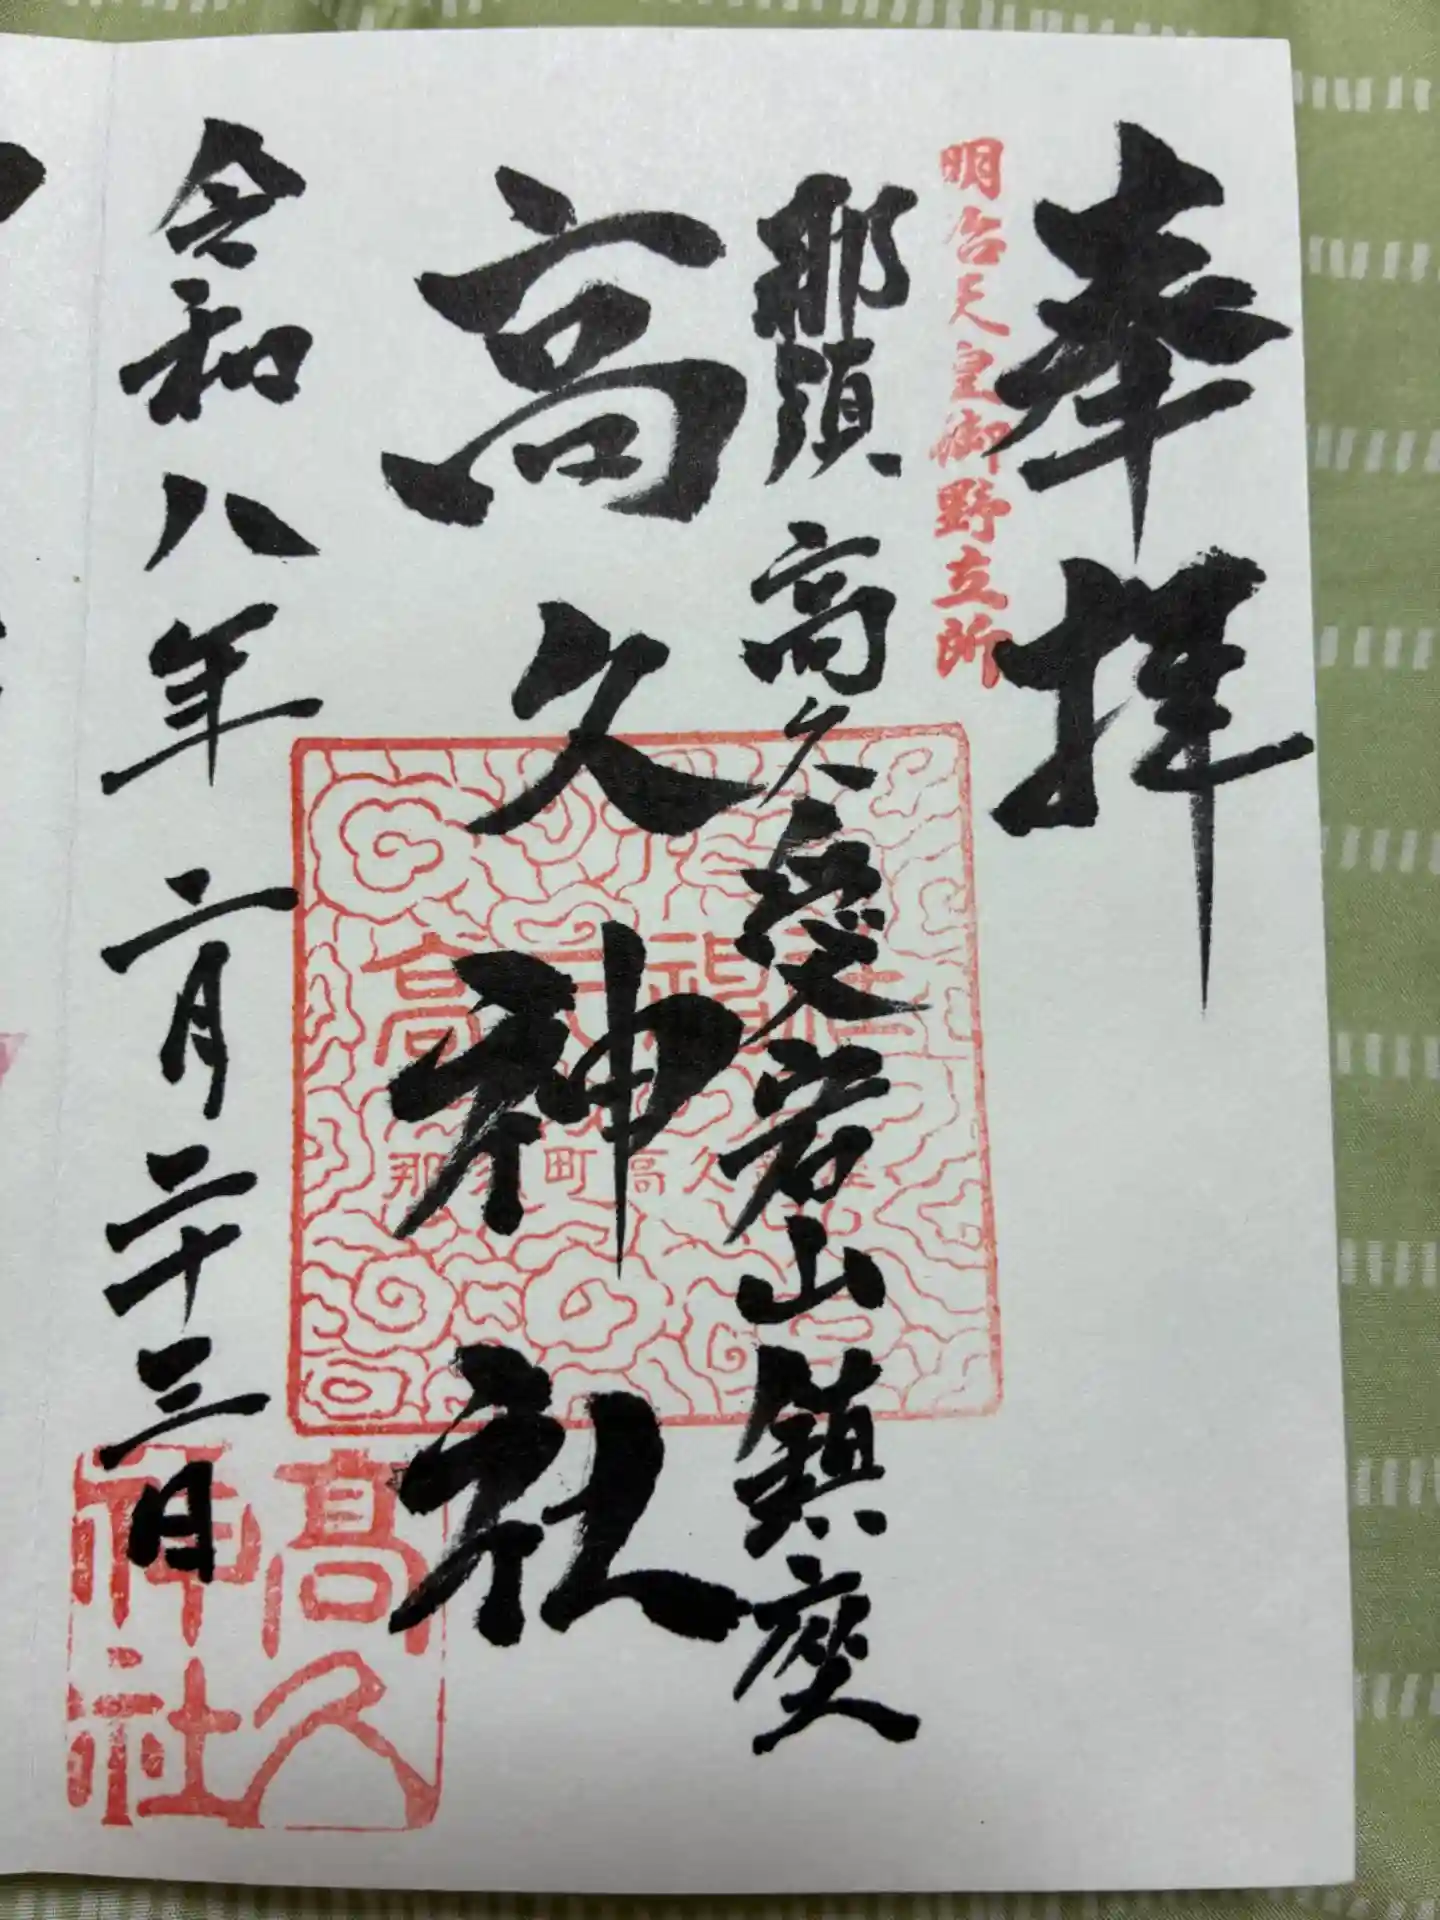 奉拝
明治天皇御野立所
那須 高久愛宕山鎮座
高久神社
令和八年二月二十三日
高久神社
那須町高久
高久神社